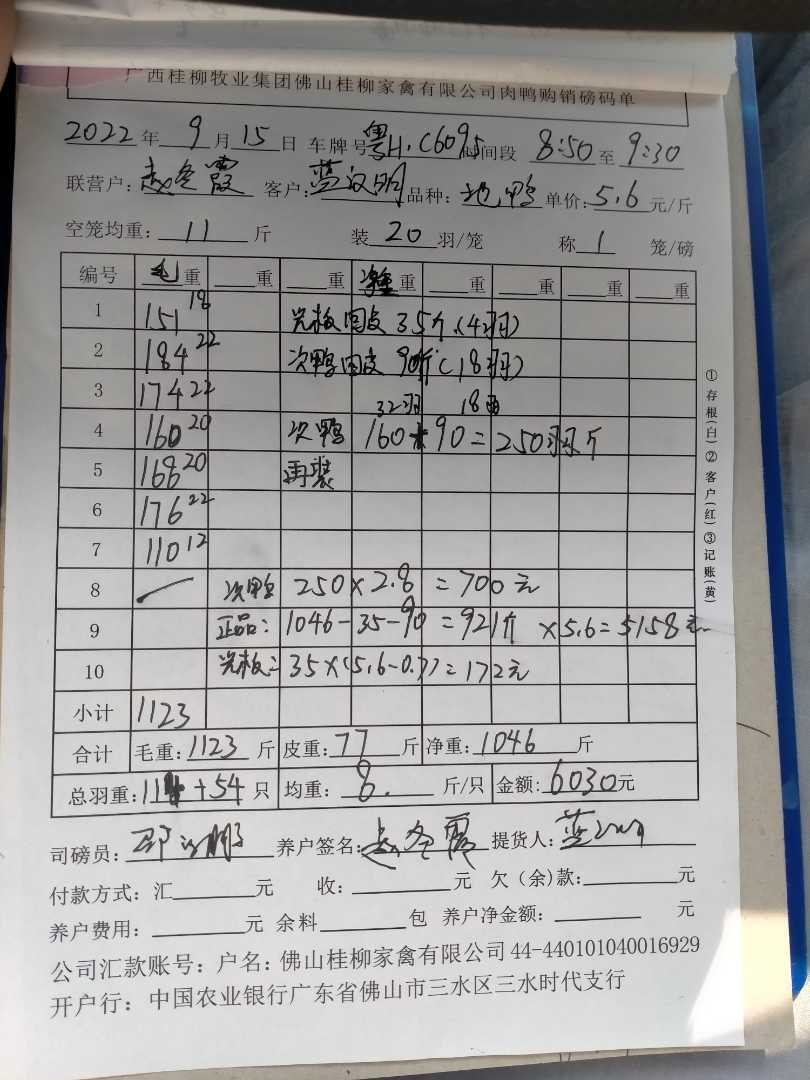 广西桂柳牧业集团佛山桂柳家禽有限公司肉鸭购销磅码单
2022年9月15日 车牌号粤H·C6095时间段 8:50至9:30
联营户:赵冬霞 客户:蓝汉明品种:地鸭单价:5.6元/斤
空笼均重:11斤 装20羽/笼 称1笼/磅
编号 毛重 重 重 重 重 重 重 重
1 151 18 光板回皮 35斤(4羽)
2 184 22 次鸭回皮 90斤(18羽)
3 174 22 32羽 18
4 160 20 次鸭 160+90=250斤
5 168 20 再装
6 176 22
7 110 12
8 — 次鸭 250×2.8=700元
9 正品:1046-35-90=921斤×5.6=5158元
10 光板:35×(5.6-0.7)=172元
小计 1123
合计 毛重:1123斤 皮重:77斤 净重:1046斤
总羽重:11 +54只 均重:8.斤/只 金额:6030元
司磅员: 养户签名:赵冬霞 提货人:蓝
付款方式:汇 元 收: 元 欠(余)款: 元
养户费用: 元 余料 包 养户净金额: 元
公司汇款账号:户名:佛山桂柳家禽有限公司 44-440101040016929
开户行:中国农业银行广东省佛山市三水区三水时代支行
①存根(白)②客户(红)③记账(黄)